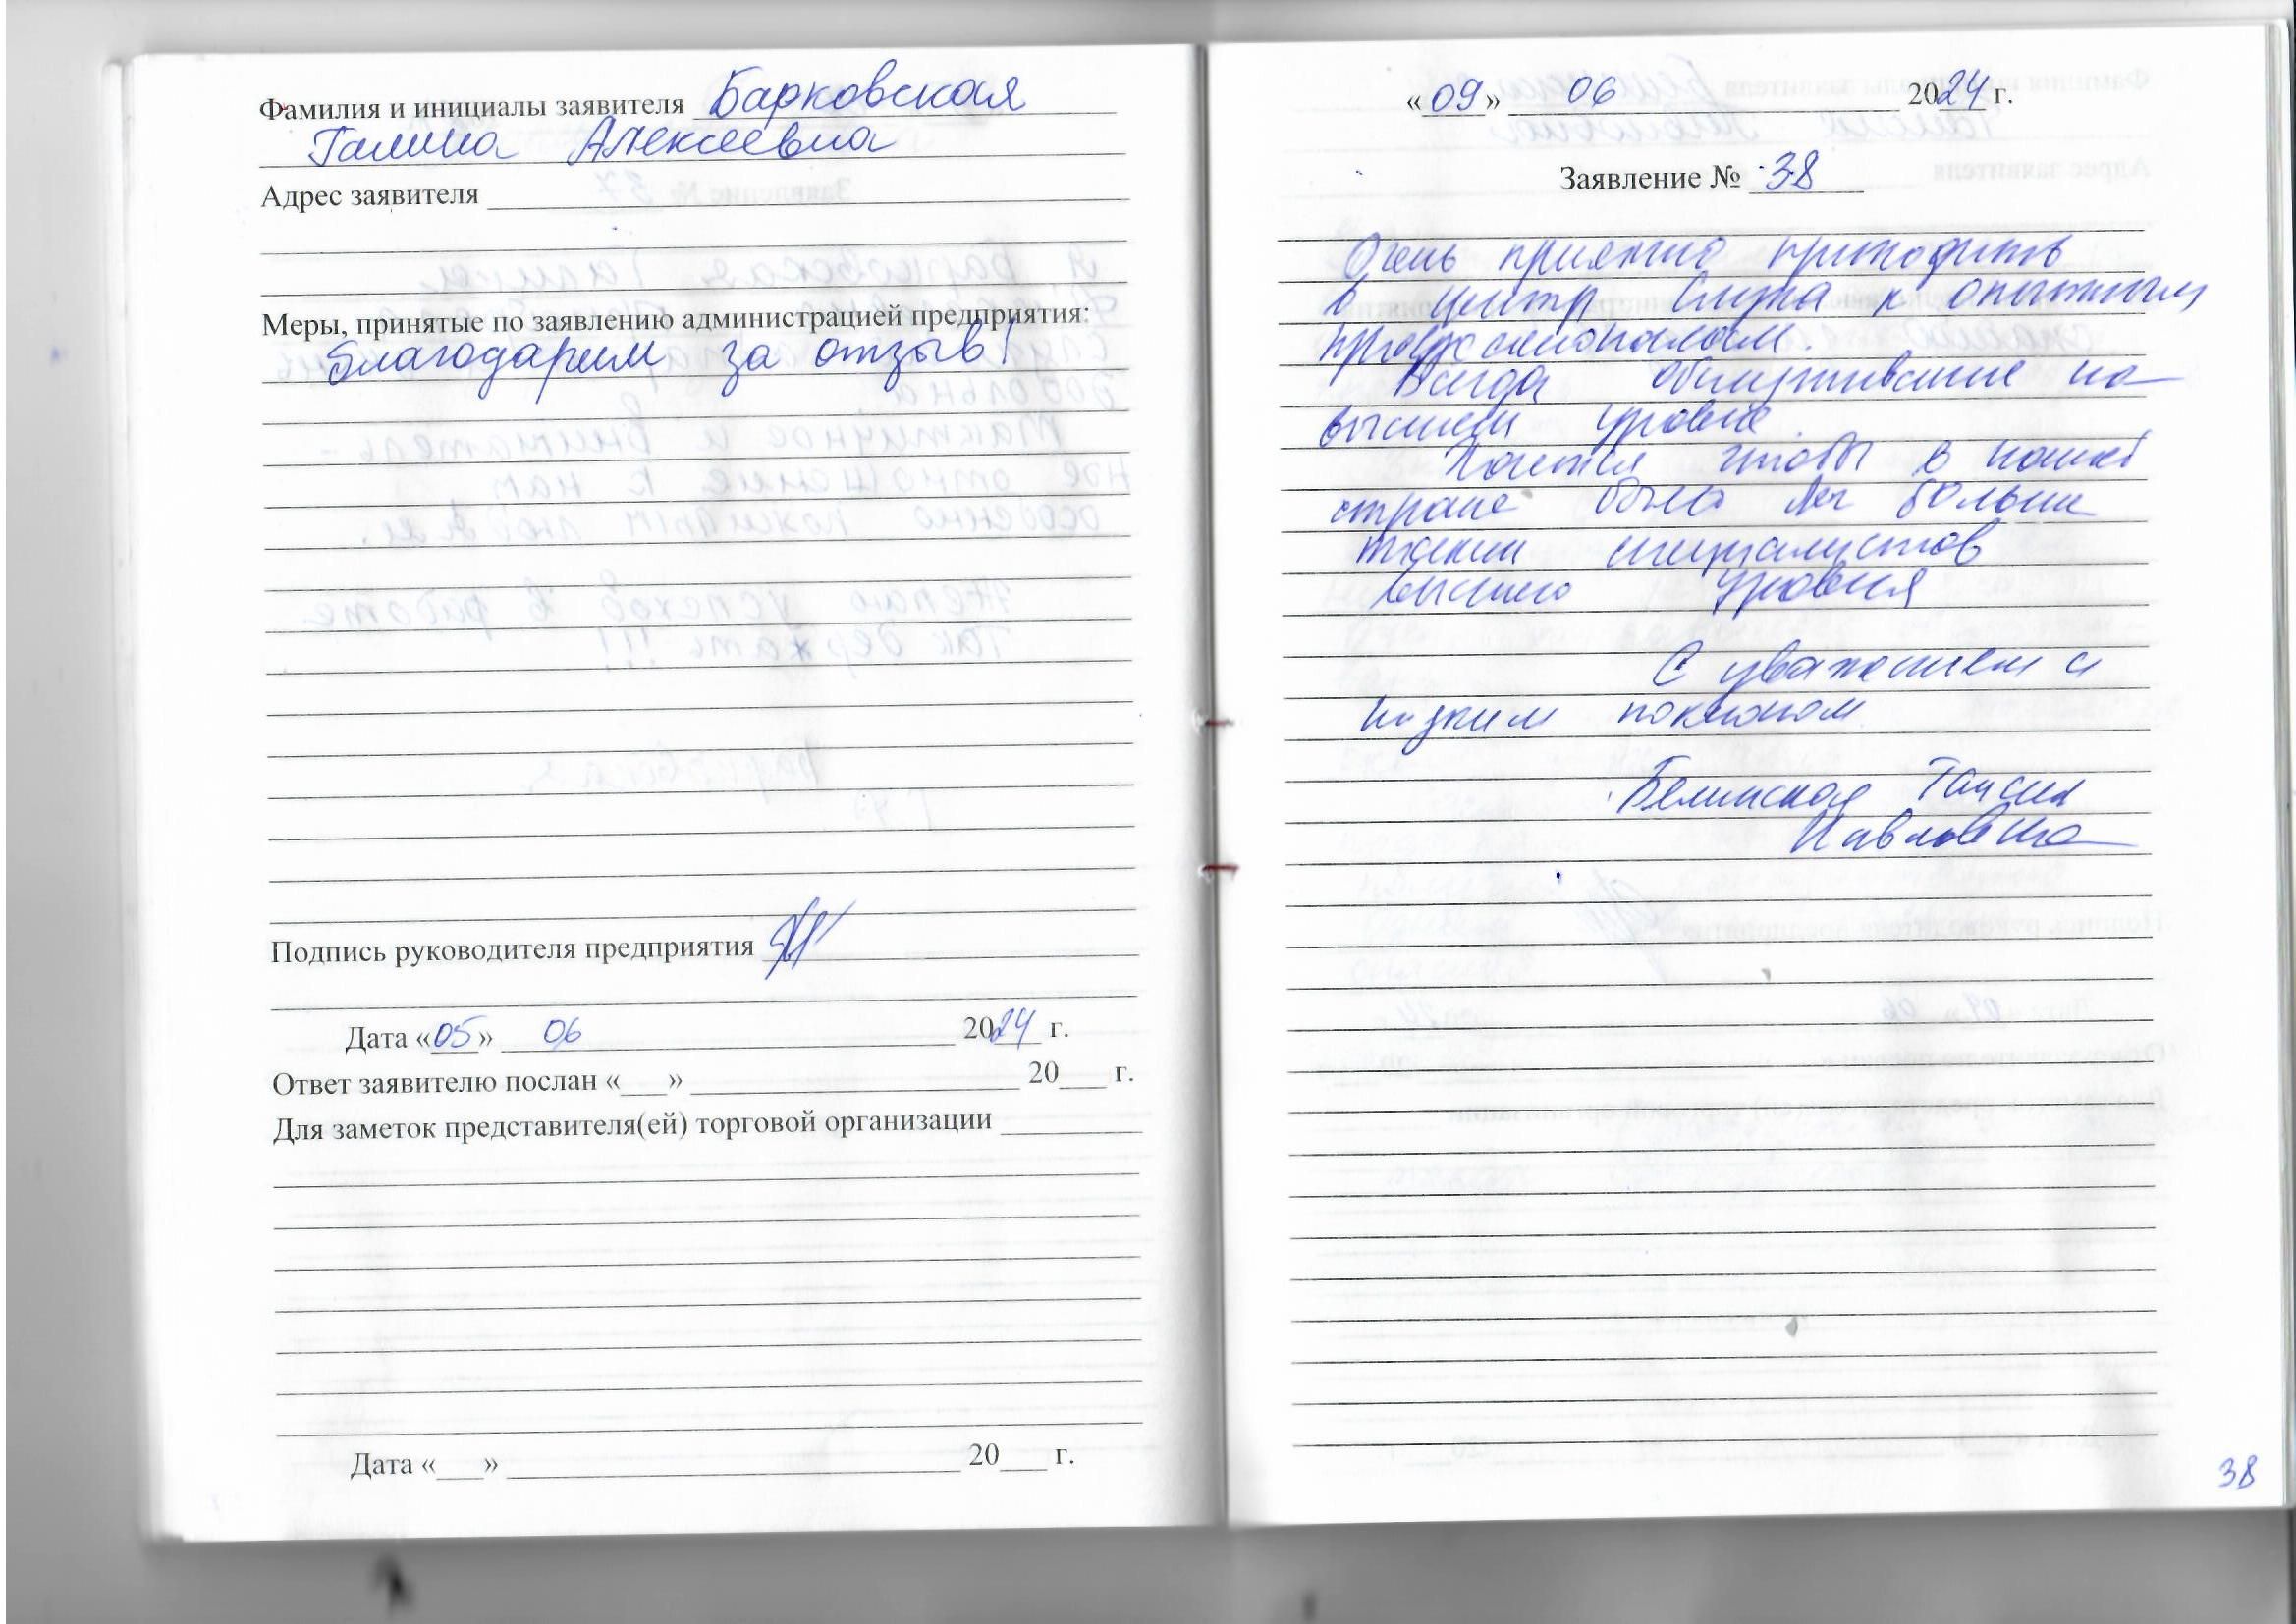 Фамилия и инициалы заявителя Барковская
Галина Алексеевна
Адрес заявителя
Меры, принятые по заявлению администрацией предприятия:
Благодарим за отзыв!
Подпись руководителя предприятия
Дата «05» 06 2024 г.
Ответ заявителю послан «___» 20___ г.
Для заметок представителя(ей) торговой организации
Дата «___» 20___ г.
«09» 06 2024 г.
Заявление № 38
Очень приятно приходить
в центр слуха к опытным
профессионалам.
Всегда обслуживание на
высшем уровне.
Хочется чтобы в нашей
стране было больше
таких специалистов
высшего уровня
С уважением и
низким поклоном
Белинская Таисия
Павловна
38